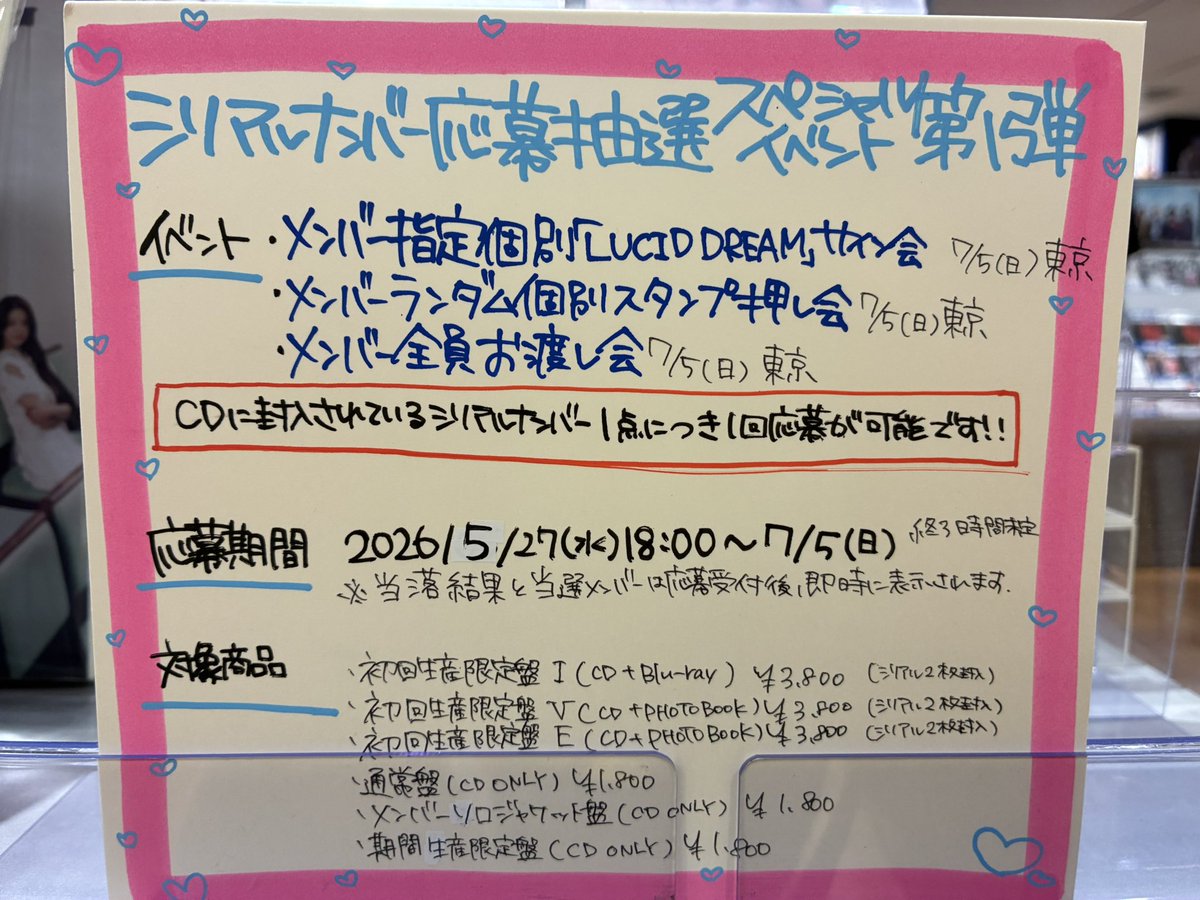 シリアルナンバー応募抽選スペシャルイベント第1弾
イベント ・メンバー指定個別「LUCID DREAM」サイン会 7/5(日)東京
・メンバーランダム個別スタンプ押し会 7/5(日)東京
・メンバー全員お渡し会 7/5(日)東京
CDに封入されているシリアルナンバー1点につき1回応募が可能です!!
応募期間 2026/5/27(水)18:00～7/5(日) ※終了時間未定
※当落結果と当選メンバーは応募受付後、即時に表示されます.
対象商品 ・初回生産限定盤 I (CD+Blu-ray) ¥3,800 (シリアル2枚封入)
・初回生産限定盤 V (CD+PHOTOBOOK) ¥3,800 (シリアル2枚封入)
・初回生産限定盤 E (CD+PHOTOBOOK) ¥3,800 (シリアル2枚封入)
・通常盤 (CD ONLY) ¥1,800
・メンバーソロジャケット盤 (CD ONLY) ¥1,800
・期間生産限定盤 (CD ONLY) ¥1,800